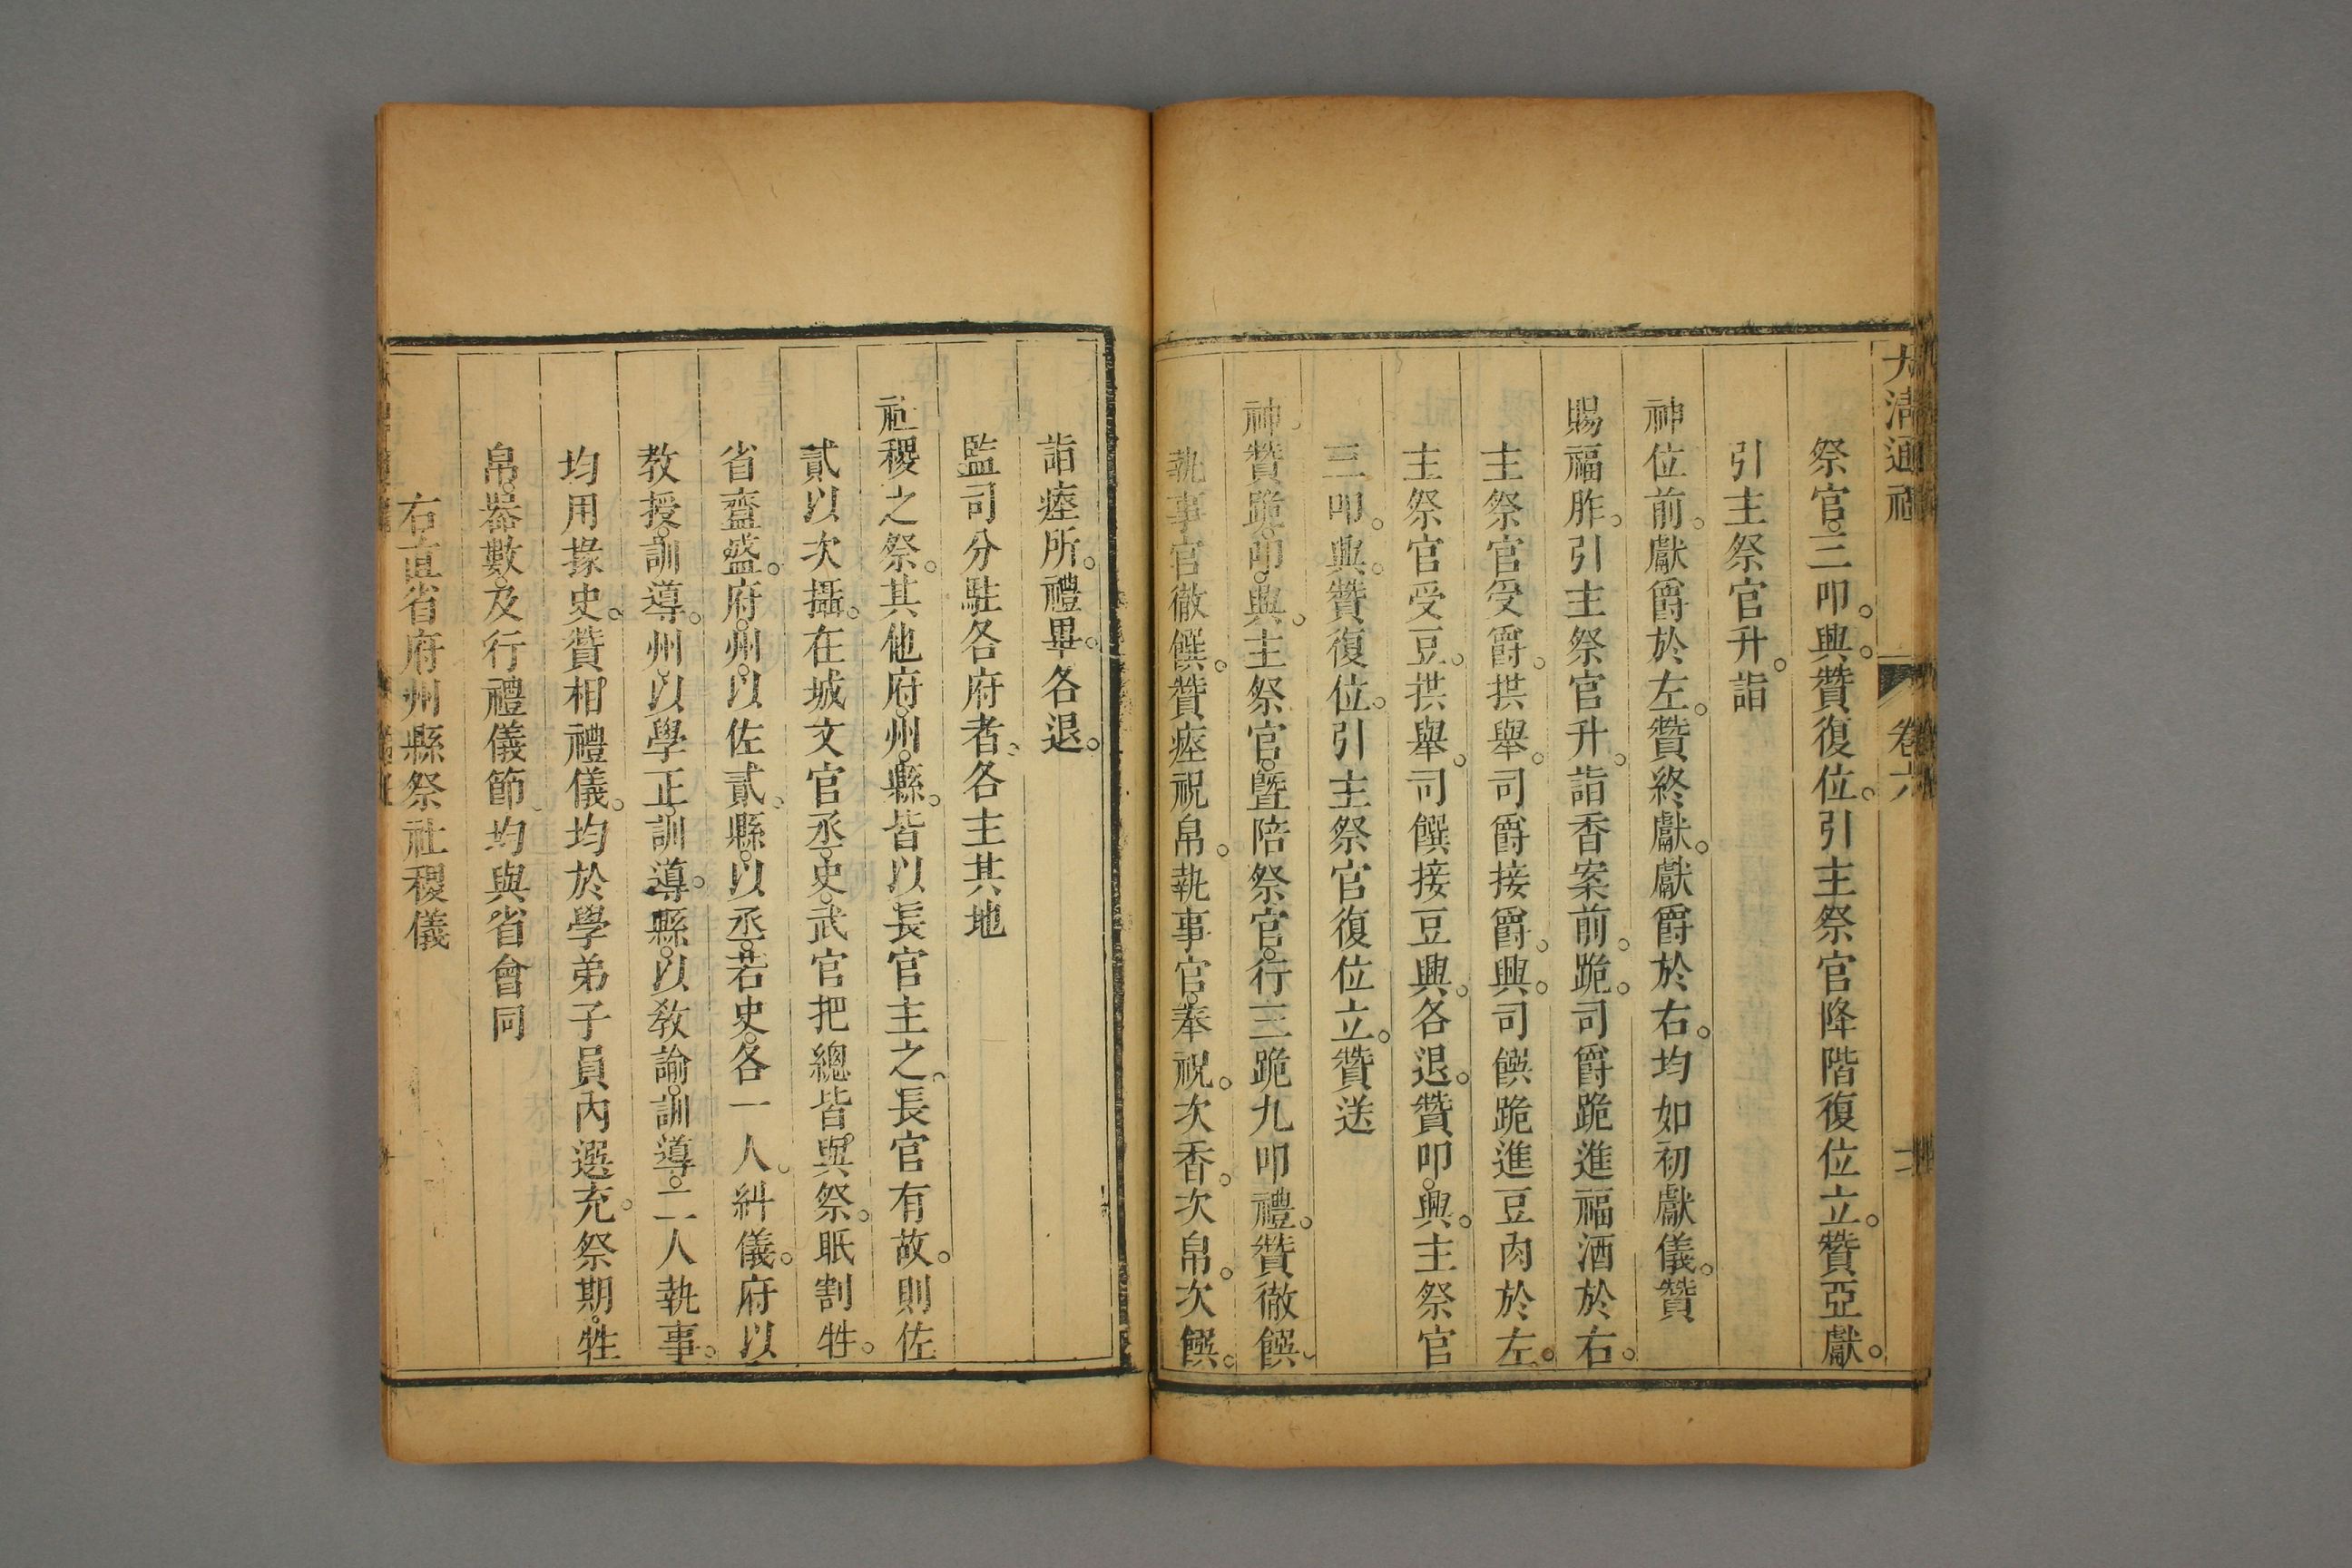 大清通禮 卷六
祭官。三叩。興。贊復位。引主祭官降階復位立。贊亞獻。
引主祭官升。詣
神位前。獻爵於左。贊終獻。獻爵於右。均如初獻儀。贊
賜福胙。引主祭官升。詣香案前。跪。司爵跪進福酒於右。
主祭官受爵。拱舉。司爵接爵。興。司饌跪進豆肉於左。
主祭官受豆。拱舉。司饌接豆興。各退。贊叩。興。主祭官
三叩。興。贊復位。引主祭官復位立。贊送
神。贊跪。叩。興。主祭官。暨陪祭官。行三跪九叩禮。贊徹饌。
執事官徹饌。贊瘞祝帛。執事官。奉祝。次香。次帛。次饌。
詣瘞所。禮畢。各退。
監司分駐各府者、各主其地
社稷之祭。其他府。州。縣。皆以長官主之、長官有故。則佐
貳以次攝。在城文官丞。史。武官把總皆與祭。眂割牲。
省齍盛。府。州。以佐貳、縣。以丞。若史。各一人。糾儀。府以
教授。訓導。州、以學正。訓導。縣。以敎諭。訓導。二人執事。
均用掾史。贊相禮儀。均於學弟子員內選充。祭期。牲
帛。器數。及行禮儀節、均與省會同
右直省府州縣祭社稷儀